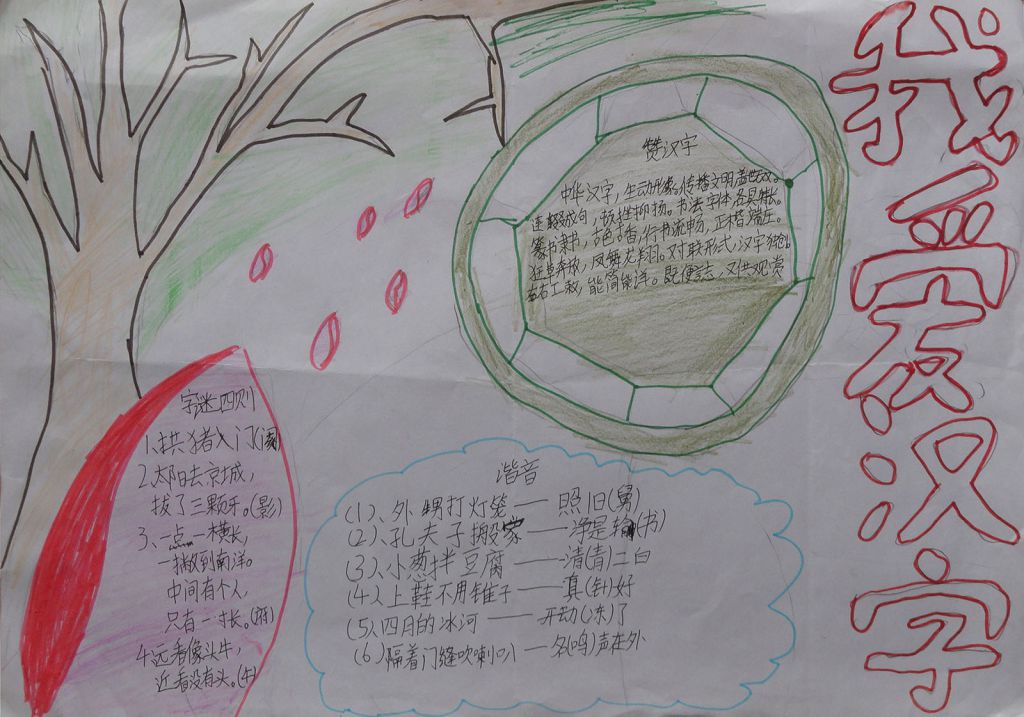 我爱汉字
赞汉字
中华汉字,生动形象。传播文明,盖世成。
连缀成句,顿挫抑扬。书法字体,各具特长。
篆书隶书,古色古香,行书流畅,正楷端庄。
狂草奔放,凤舞龙翔。对联形式,汉字独创。
左右工整,能简能洋。既便言志,又供观赏
字谜四则
1、拱猪入门(阂)
2、太阳去京城,
拔了三颗牙。(影)
3、一点一横长,
一撇撇到南洋。
中间有个人,
只有一寸长。(府)
4、远看像头牛,
近看没有头。(午)
谐音
(1)、外甥打灯笼——照旧(舅)
(2)、孔夫子搬家——净是输(书)
(3)、小葱拌豆腐——清(青)二白
(4)、上鞋不用锥子——真(针)好
(5)、四月的冰河——开动(冻)了
(6)、隔着门缝吹喇叭—名(鸣)声在外